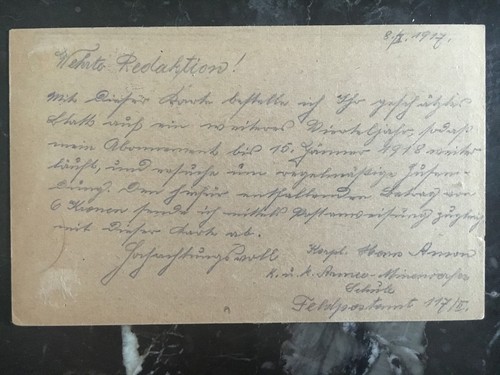 8./X. 1917.
Werte Redaktion!
Mit dieser Karte bestelle ich Ihr geschätztes
Blatt auf ein weiteres Vierteljahr, sodaß
mein Abonnement bis 15. Jänner 1918 weiter
läuft, und ersuche um regelmäßige Zusen-
dung. Den hiefür enthaltenden Betrag von
6 Kronen sende ich mittels Postanweisung zugleich
mit dieser Karte ab.
Hochachtungsvoll
Hans
k. u. k. Armee-Minenwerfer
Schule
Feldpostamt 117/II.